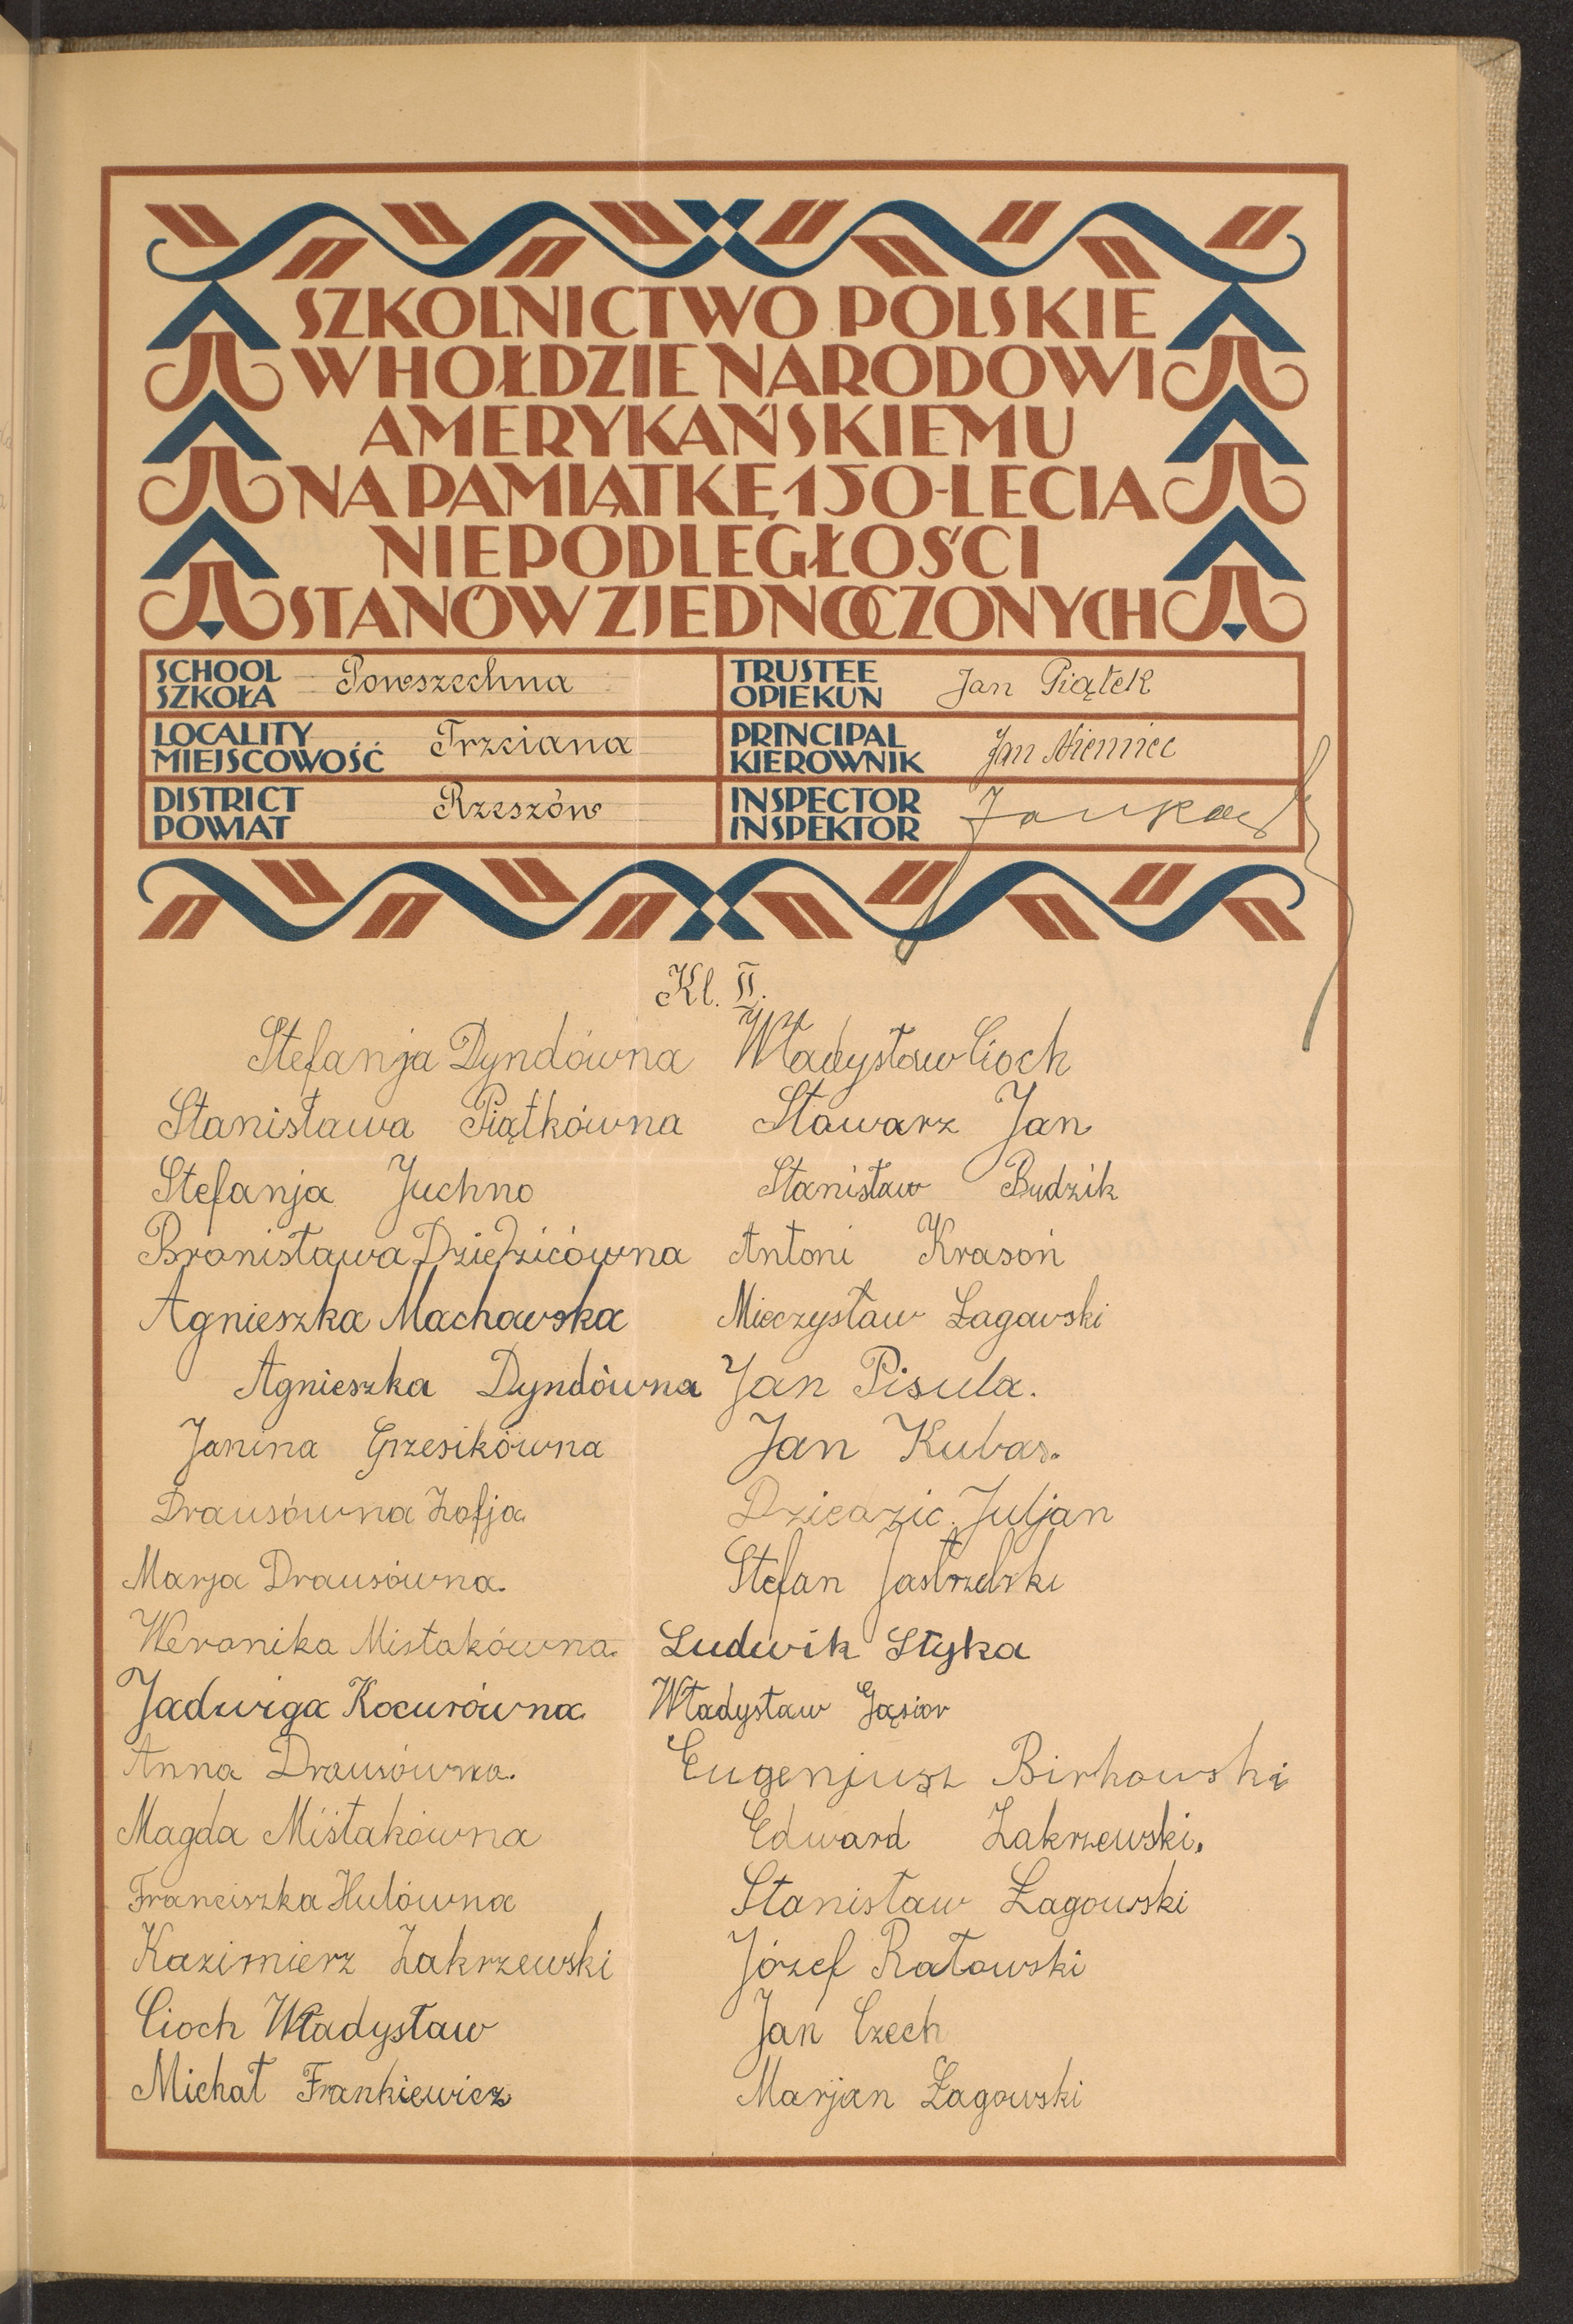 SZKOLNICTWO POLSKIE
W HOŁDZIE NARODOWI
AMERYKAŃSKIEMU
NA PAMIĄTKĘ 150-LECIA
NIEPODLEGŁOŚCI
STANÓW ZJEDNOCZONYCH
SCHOOL SZKOŁA Powszechna
TRUSTEE OPIEKUN Jan Piątek
LOCALITY MIEJSCOWOŚĆ Trzciana
PRINCIPAL KIEROWNIK Jan Niemiec
DISTRICT POWIAT Rzeszów
INSPECTOR INSPEKTOR
Kl. II.
Stefanja Dyndówna
Stanisława Piątkówna
Stefanja Juchno
Bronisława Dziedzicówna
Agnieszka Machowska
Agnieszka Dyndówna
Janina Grzesikówna
Drausówna Zofja.
Marja Drausówna.
Weronika Mistakówna.
Jadwiga Kocurówna.
Anna Drausówna.
Magda Miśtakówna
Franciszka Hulówna
Kazimierz Zakrzewski
Cioch Władysław
Michał Frankiewicz
Władysław Cioch
Stawarz Jan
Stanisław Budzik
Antoni Krasoń
Mieczysław Łagowski
Jan Pisula.
Jan Kubas.
Dziedzic Juljan
Stefan Jastrzebski
Ludwik Styka
Władysław Gąsior
Eugenjusz Birkowski
Edward Zakrzewski.
Stanisław Łagowski
Józef Ratowski
Jan Czech
Marjan Łagowski